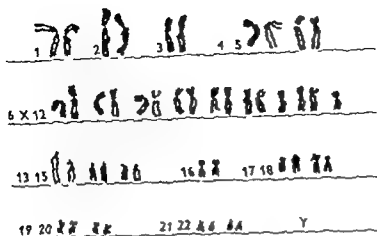 1 2 3 4 5
6 X 12
13 15 16 17 18
19 20 21 22 Y